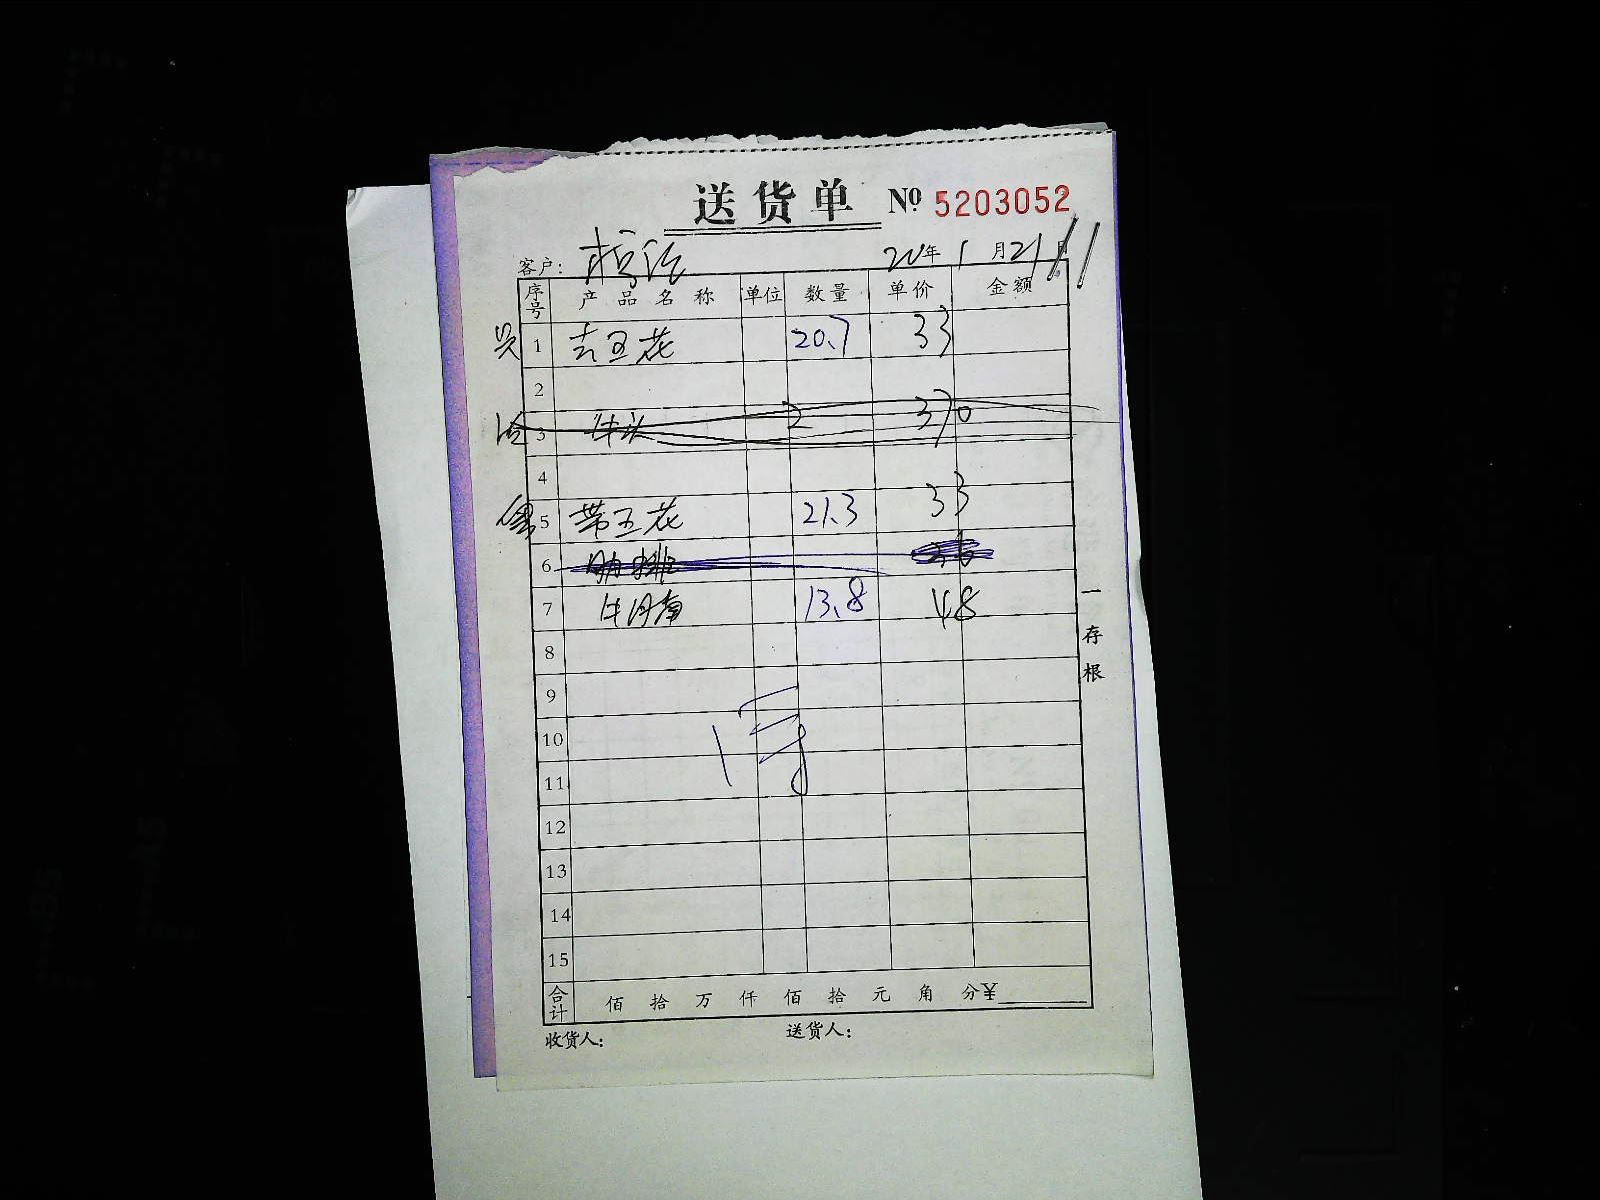 送货单 № 5203052
客户： 年 1 月 21 日
序号 产品名称 单位 数量 单价 金额
1 去五花 20.7 33
2
3 牛头 2 370
4
5 带五花 21.3 33
6 肋排
7 牛腩 13.8 48
8
9
10
11
12
13
14
15
合计 佰 拾 万 仟 佰 拾 元 角 分 ¥
收货人： 送货人：
一存根